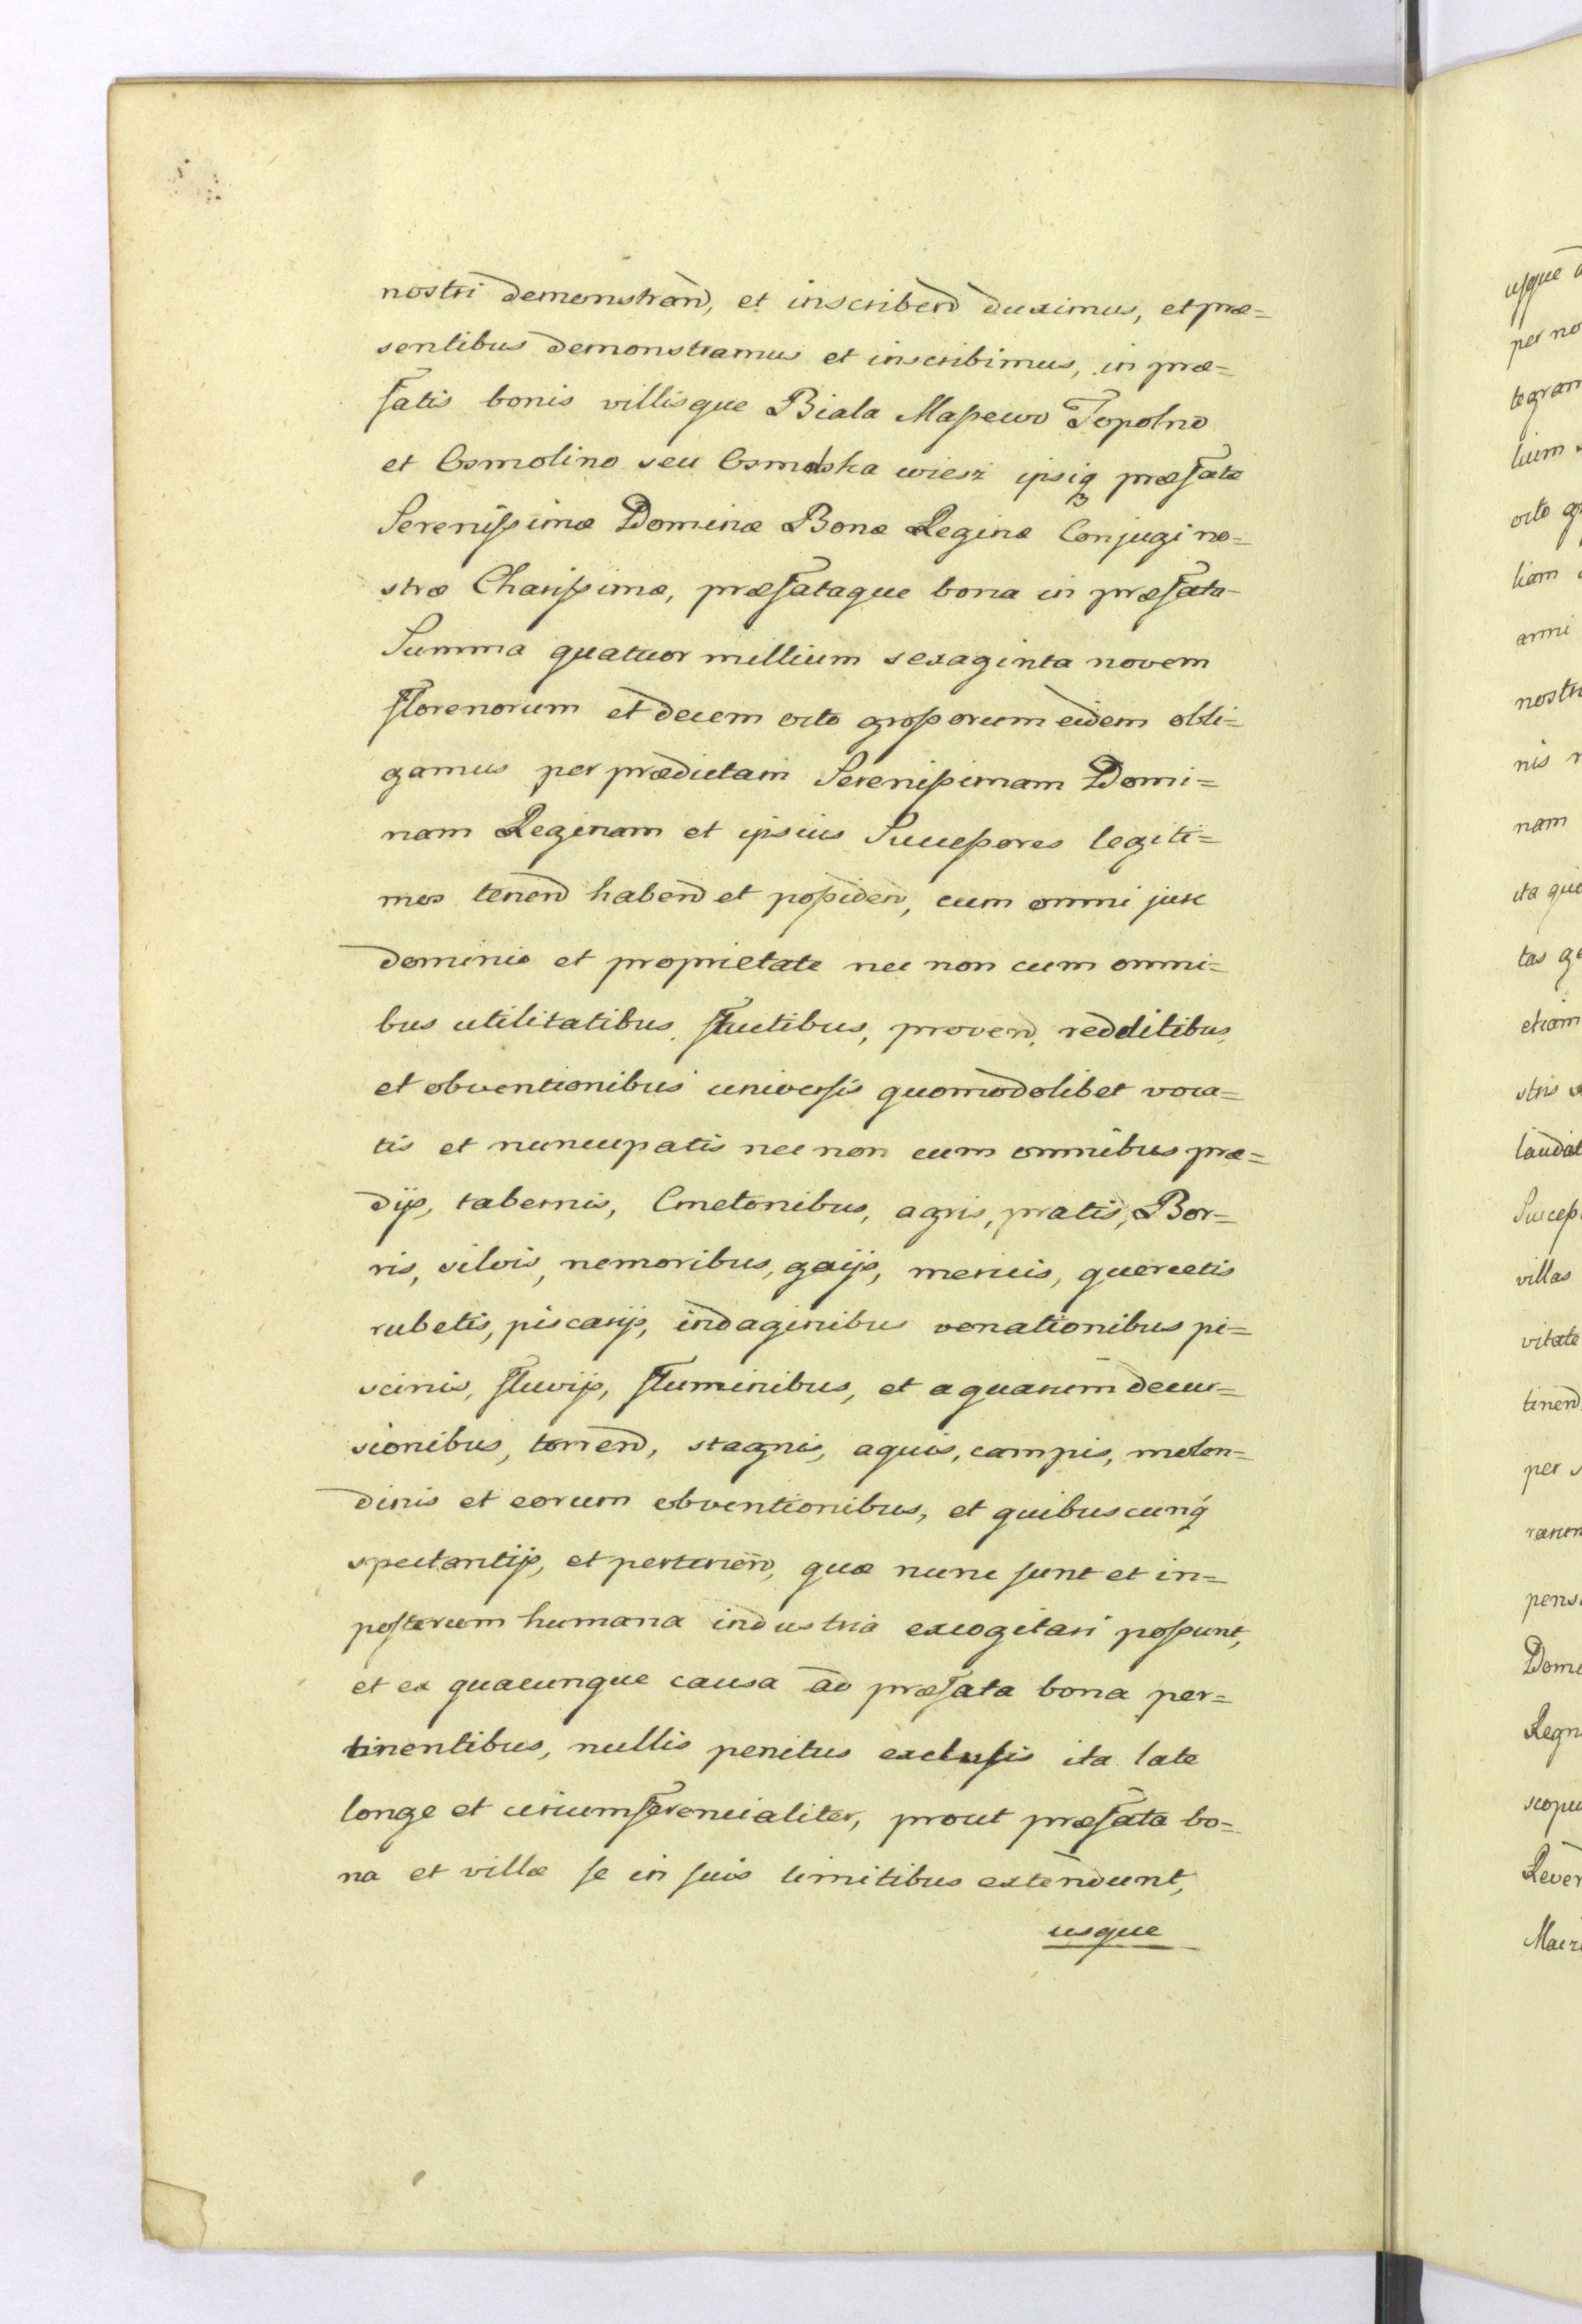 nostri demonstrand, et inscribend duximus, et præ=
sentibus demonstramus et inscribimus, in præ=
fatis bonis villisque Biala Maßewo Topolno
et Osmolino seu Osmolska wiesz ipsiq præfatæ
Serenißimæ Dominæ Bonæ Reginæ Conjugi no=
stræ Charißimæ, præfataque bona in præfata
Summa quatuor millium sexaginta novem
florenorum et decem octo großorum eidem obli=
gamus per prædictam Serenißimam Domi=
nam Reginam et ipsius Succeßores legiti=
mos tenend habend et poßidend, cum omni jure
dominio et proprietate nec non cum omni=
bus utilitatibus, fructibus, provend, redditibus,
et obventionibus universis quomodolibet voca=
tis et nuncupatis nec non cum omnibus præ=
dijs, tabernis, Cmetonibus, agris, pratis, Bor=
ris, silvis, nemoribus, gaijs, mericis, quercetis
rubetis, piscarijs, indaginibus venationibus pi=
scinis, fluvijs, fluminibus, et aquarum decur=
sionibus, torrend, stagnis, aquis, campis, molen=
dinis et eorum obventionibus, et quibuscunq
spectantijs, et pertinend, quæ nunc sunt et in=
posterum humana industria excogitari poßunt,
et ex quacunque causa ad præfata bona per=
tinentibus, nullis penitus exclusis ita late
longe et circumferencialiter, prout præfata bo=
na et villæ se in suis limitibus extendunt,
usque
usque
per no
tegram
lium
octo g
liam
anni
nostr
nis
nam
ita que
tas g
etiam
stris
laudat
Succeß
villas
vitate
tinend
per
pens
Domi
Regn
scopu
Rever